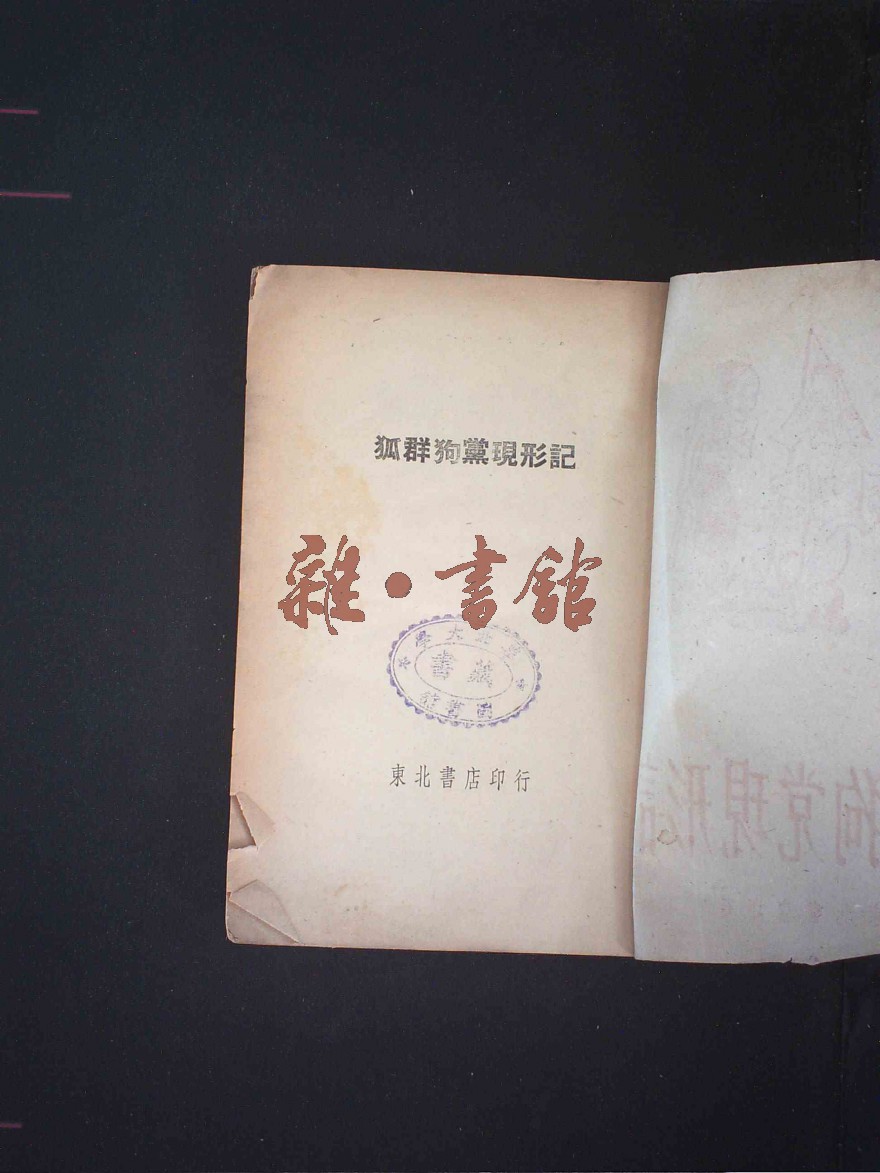 狐群狗黨現形記
雜·書館
藏書
圖書館
東北書店印行
狗党現形記